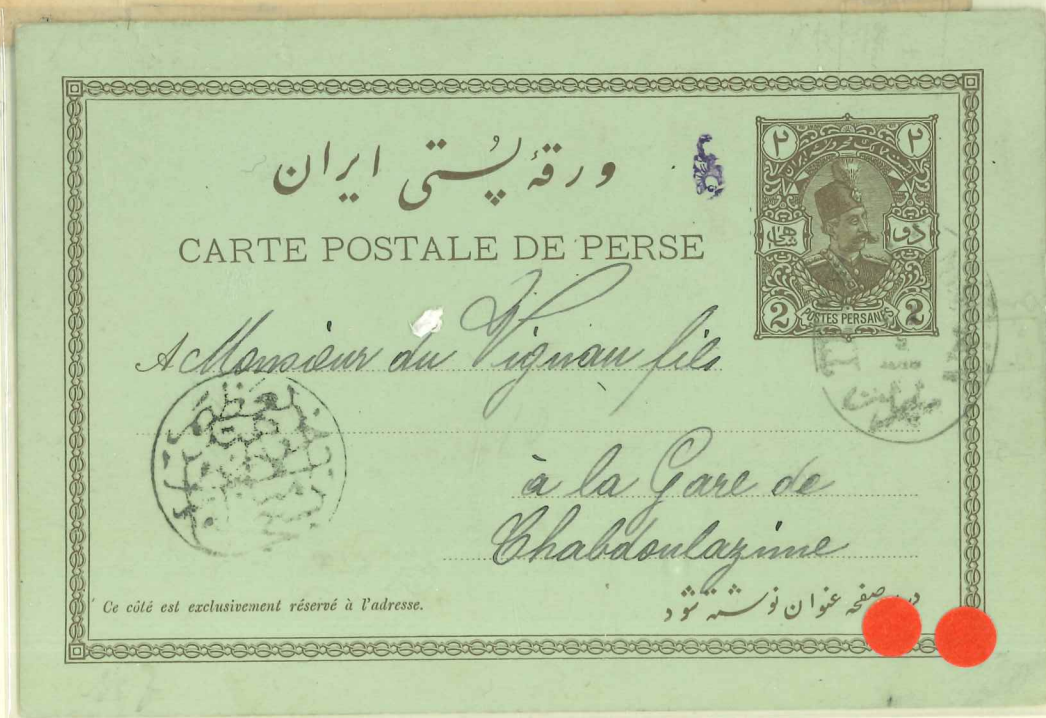 ورقهٔ پُستی ایران
CARTE POSTALE DE PERSE
۲ ۲
دو شاهی
2 POSTES PERSANES 2
A Monsieur du Vignau fils
à la Gare de
Chabdoulazime
Ce côté est exclusivement réservé à l'adresse.
صفحه عنوان نوشته شود